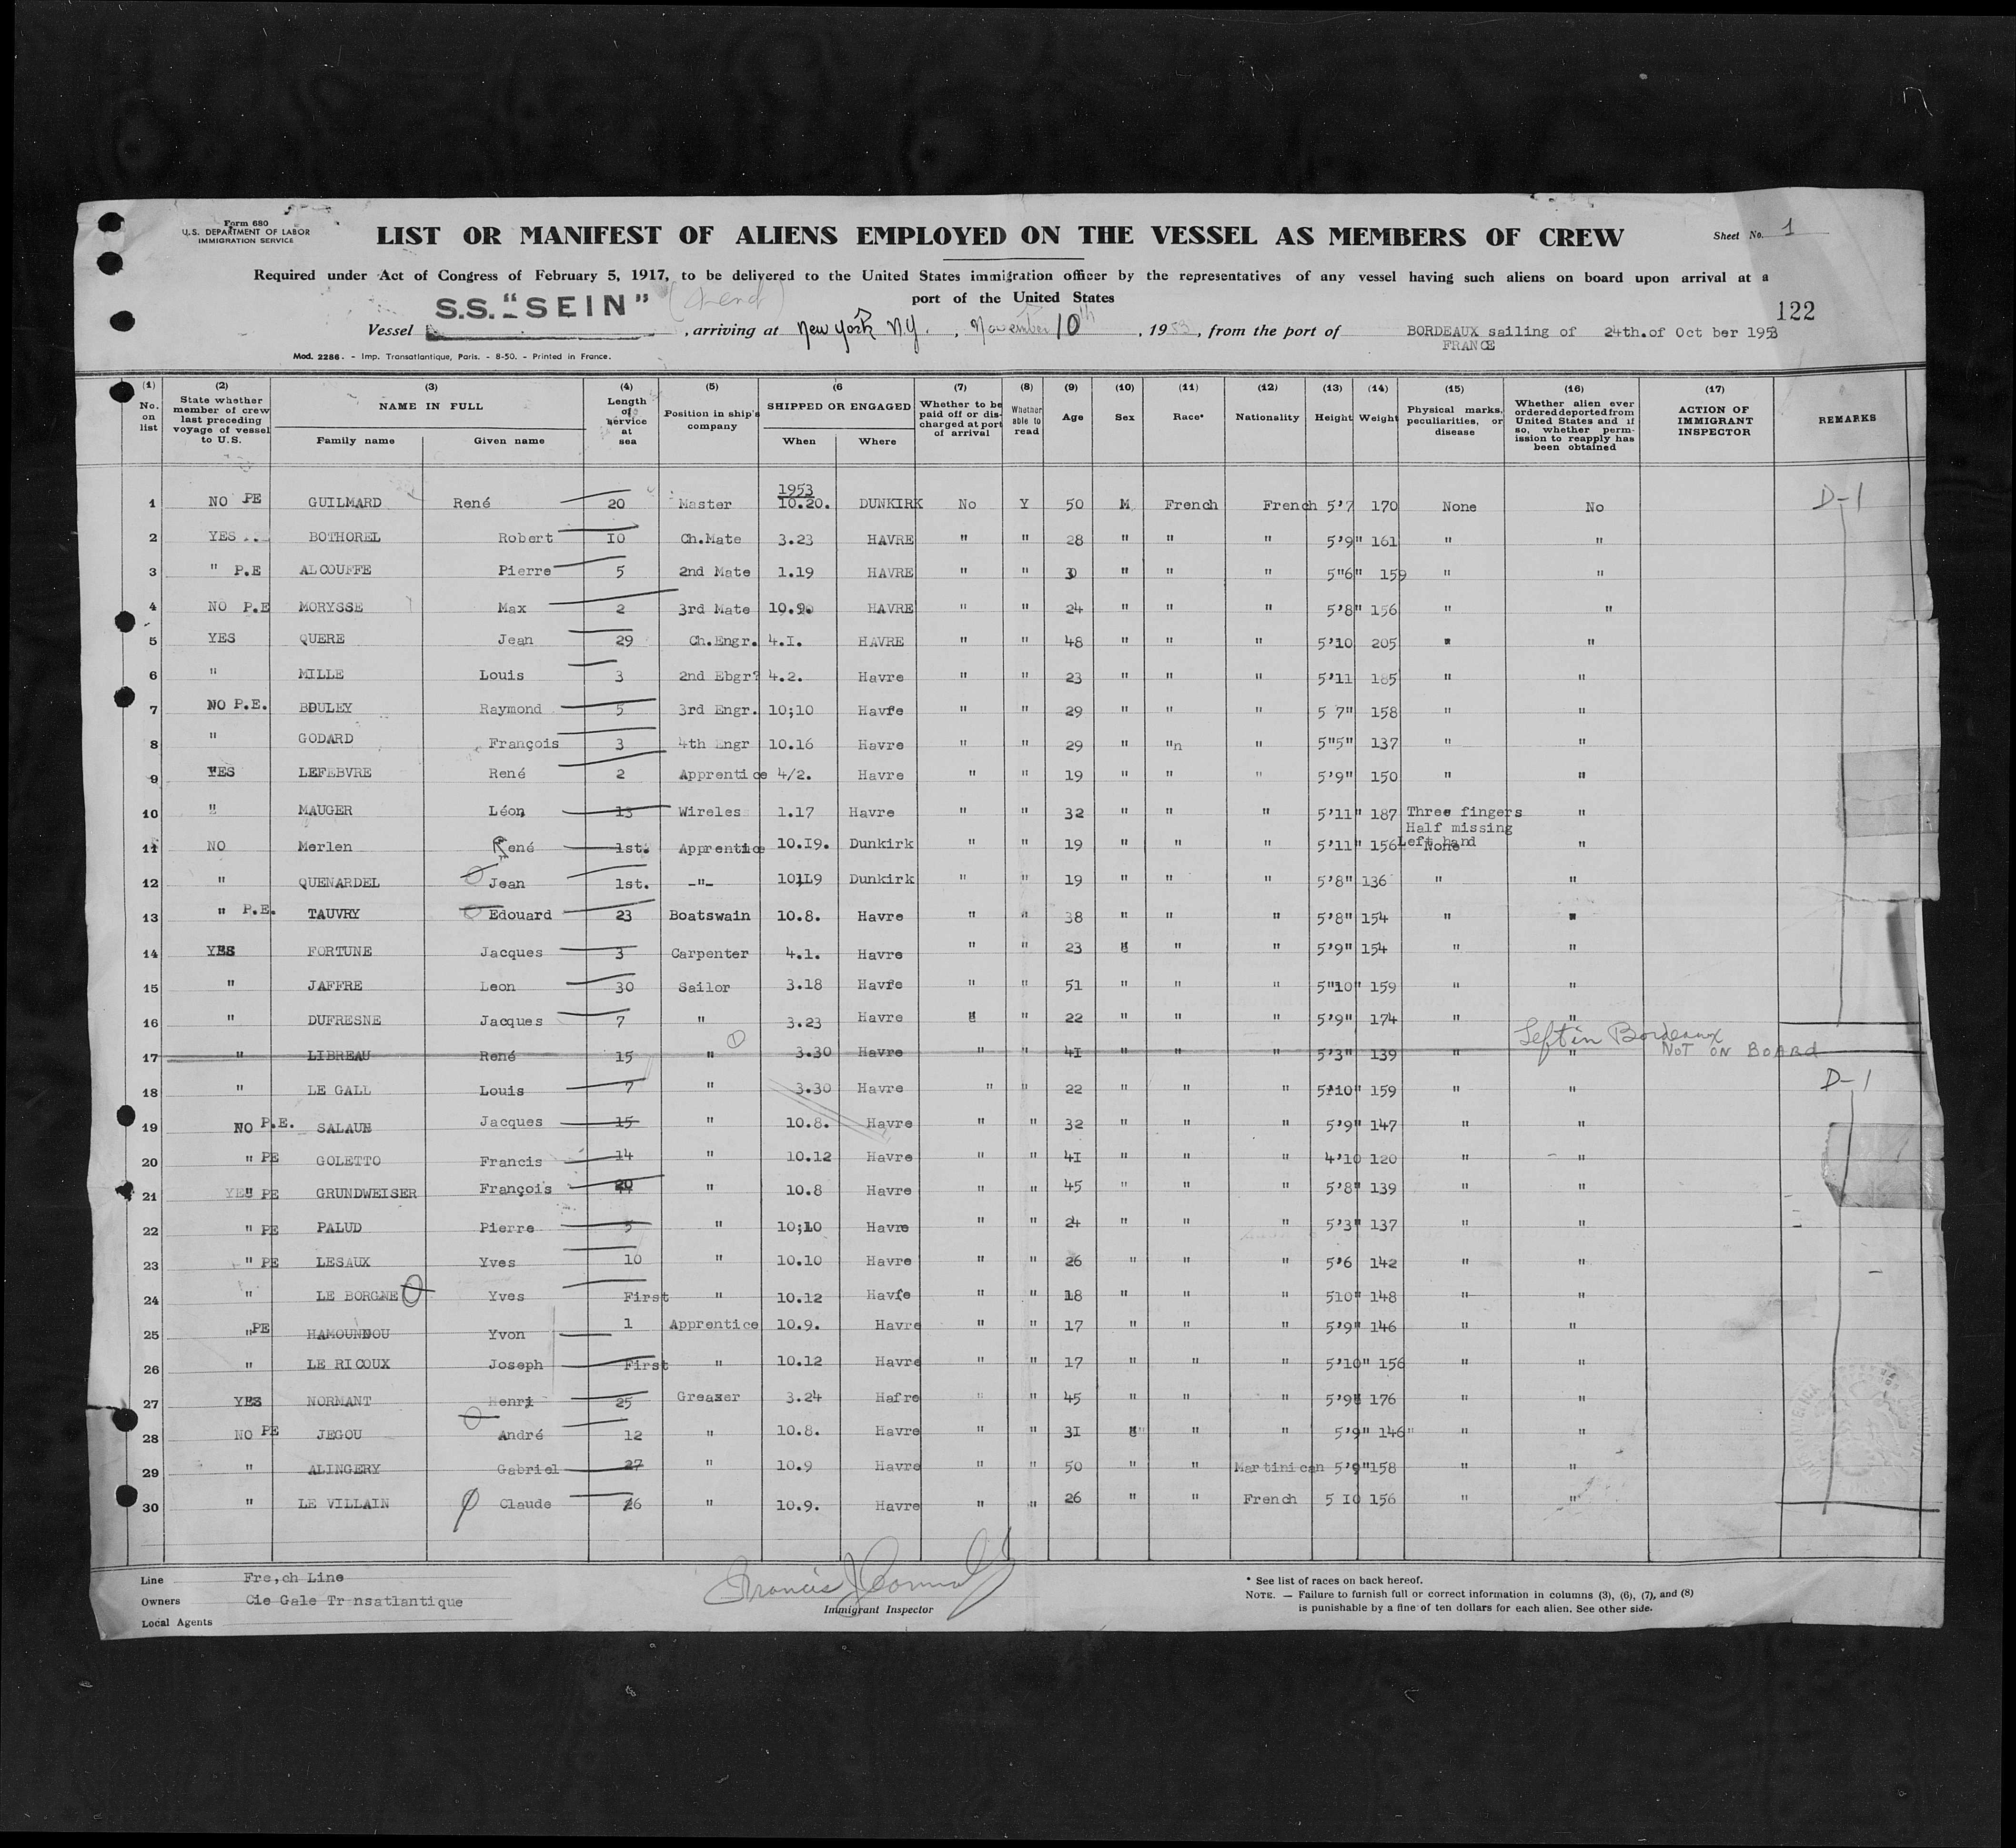 Form 680
U.S. DEPARTMENT OF LABOR
IMMIGRATION SERVICE
LIST OR MANIFEST OF ALIENS EMPLOYED ON THE VESSEL AS MEMBERS OF CREW
Sheet No. 1
Required under Act of Congress of February 5, 1917, to be delivered to the United States immigration officer by the representatives of any vessel having such aliens on board upon arrival at a
port of the United States
122
Vessel S.S. "SEIN" , arriving at New York N.Y. , November 10th , 1953 , from the port of BORDEAUX sailing of 24th.of Oct ber 1953
FRANCE
Mod. 2286. - Imp. Transatlantique, Paris. - 8-50. - Printed in France.
(1) (2) (3) (4) (5) (6 (7) (8) (9) (10) (11) (12) (13) (14) (15) (16) (17)
No. on list State whether member of crew last preceding voyage of vessel to U.S. NAME IN FULL Family name Given name Length of service at sea Position in ship's company SHIPPED OR ENGAGED When Where Whether to be paid off or discharged at port of arrival Whether able to read Age Sex Race* Nationality Height Weight Physical marks, peculiarities, or disease Whether alien ever ordered deported from United States and if so, whether permission to reapply has been obtained ACTION OF IMMIGRANT INSPECTOR REMARKS
1953
1 NO PE GUILMARD René 20 Master 10.20. DUNKIRK No Y 50 M French French 5'7 170 None No D-1
2 YES BOTHOREL Robert 10 Ch.Mate 3.23 HAVRE " " 28 " " " 5'9" 161 " "
3 " P.E ALCOUFFE Pierre 5 2nd Mate 1.19 HAVRE " " 30 " " " 5"6" 159 " "
4 NO P.E MORYSSE Max 2 3rd Mate 10.9. HAVRE " " 24 " " " 5'8" 156 " "
5 YES QUERE Jean 29 Ch.Engr. 4.I. HAVRE " " 48 " " " 5'10 205 " "
6 " MILLE Louis 3 2nd Ebgr? 4.2. Havre " " 23 " " " 5'11 185 " "
7 NO P.E. BOULEY Raymond 5 3rd Engr. 10;10 Havre " " 29 " " " 5 7" 158 " "
8 " GODARD François 3 4th Engr 10.16 Havre " " 29 " "n " 5"5" 137 " "
9 YES LEFEBVRE René 2 Apprentice 4/2. Havre " " 19 " " " 5'9" 150 " "
10 " MAUGER Léon 13 Wireles 1.17 Havre " " 32 " " " 5'11" 187 Three fingers "
Half missing
Left hand
11 NO Merlen René 1st. Apprentice 10.19. Dunkirk " " 19 " " " 5'11" 156 None "
12 " QUENARDEL Jean 1st. -"- 10.19 Dunkirk " " 19 " " " 5'8" 136 " "
13 " P.E. TAUVRY Edouard 23 Boatswain 10.8. Havre " " 38 " " " 5'8" 154 " "
14 YES FORTUNE Jacques 3 Carpenter 4.1. Havre " " 23 " " " 5'9" 154 " "
15 " JAFFRE Leon 30 Sailor 3.18 Havre " " 51 " " " 5"10" 159 " "
16 " DUFRESNE Jacques 7 " 3.23 Havre " " 22 " " " 5'9" 174 " "
Left in Bordeaux
17 " LIBREAU René 15 " 3.30 Havre " " 41 " " " 5'3" 139 " " NOT ON BOARD
18 " LE GALL Louis 7 " 3.30 Havre " " 22 " " " 5'10" 159 " " D-1
19 NO P.E. SALAUN Jacques 15 " 10.8. Havre " " 32 " " " 5'9" 147 " "
20 " PE GOLETTO Francis 14 " 10.12 Havre " " 41 " " " 4'10 120 " "
21 " PE GRUNDWEISER François 20 " 10.8 Havre " " 45 " " " 5'8" 139 " "
22 " PE PALUD Pierre 5 " 10;10 Havre " " 24 " " " 5'3" 137 " "
23 " PE LESAUX Yves 10 " 10.10 Havre " " 26 " " " 5'6 142 " "
24 " LE BORGNE Yves First " 10.12 Havre " " 18 " " " 510" 148 " "
25 " PE HAMOUNNOU Yvon 1 Apprentice 10.9. Havre " " 17 " " " 5'9" 146 " "
26 " LE RICOUX Joseph First " 10.12 Havre " " 17 " " " 5'10" 156 " "
27 YES NORMANT Henri 25 Greaser 3.24 Hafre " " 45 " " " 5'9" 176 " "
28 NO PE JEGOU André 12 " 10.8. Havre " " 31 " " " 5'9" 146" " "
29 " ALINGERY Gabriel 27 " 10.9 Havre " " 50 " " Martinican 5'9" 158 " "
30 " LE VILLAIN Claude 26 " 10.9. Havre " " 26 " " French 5 10 156 " "
Line Fre,ch Line
Owners Cie Gale Tr nsatlantique
Local Agents
Immigrant Inspector
* See list of races on back hereof.
NOTE. — Failure to furnish full or correct information in columns (3), (6), (7), and (8)
is punishable by a fine of ten dollars for each alien. See other side.